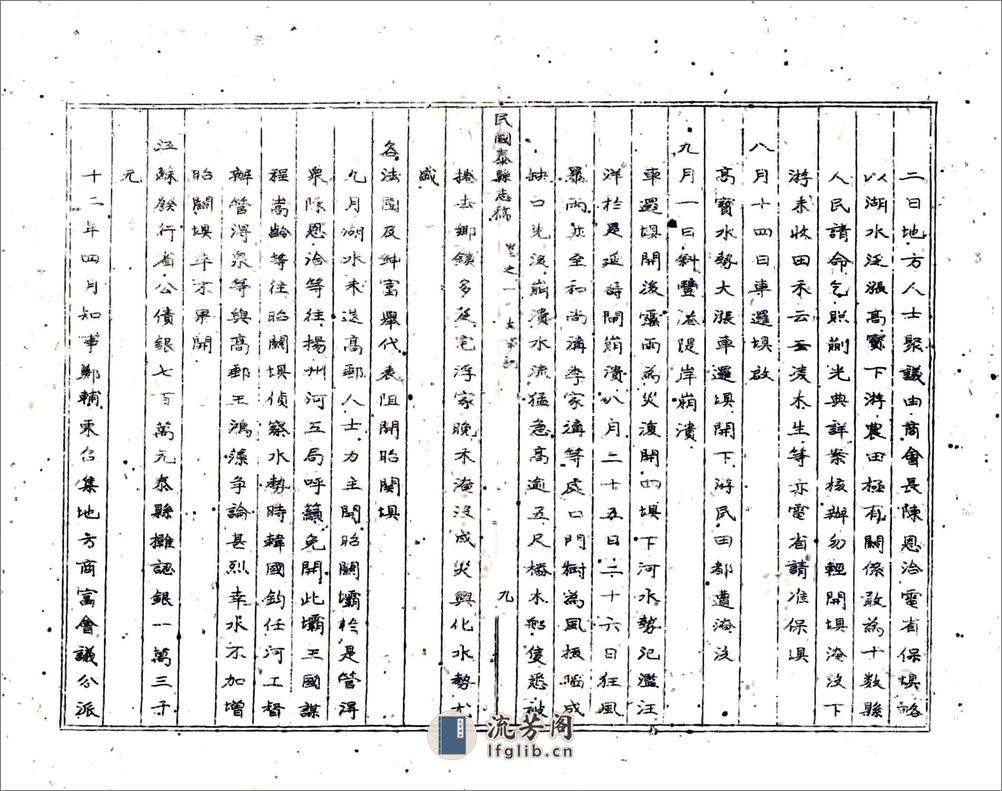 二日地方人士聚議由商會長陳恩洽電省保垻略
以湖水泛漲高寶下游農田極有關係敢為十數縣
人民請命乞照前光典詳案核辦勿輕開垻淹没下
游未收田禾云云凌木生等亦電省請准保垻
八月十四日車邏垻啟
高寶水勢大漲車邏垻開下游民田都遭淹没
九月一日斜豐港隄岸崩潰
車邏垻開後霪雨為災復開四垻下河水勢氾濫汪
洋於是延壽閘崩潰八月二十五日二十六日狂風
暴雨並至和尚溝李家溝等處口門樹為風拔陷成
缺口先後崩潰水流猛急高逾五尺橋木船隻悉被
民國泰縣志稿 卷之一 大事記 九
捲去鄉鎮多笼宅浮家晚禾淹没成災興化水勢尤
盛
各法團及紳富舉代表阻開昭關垻
九月湖水未退高郵人士力主開昭關壩於是管得
泉陳恩洽等往楊州河工局呼籲免開此壩王國謀
程嵩齡等往昭關垻偵察水勢時韓國鈞任河工督
辦管得泉等與高郵王鴻藻爭論甚烈幸水不加增
昭關垻卒未果開
江蘇發行省公債銀七百萬元泰縣攤認銀一萬三千
元
十二年四月知事鄭輔東召集地方商富會議分派
流芳阁
lfglib.cn